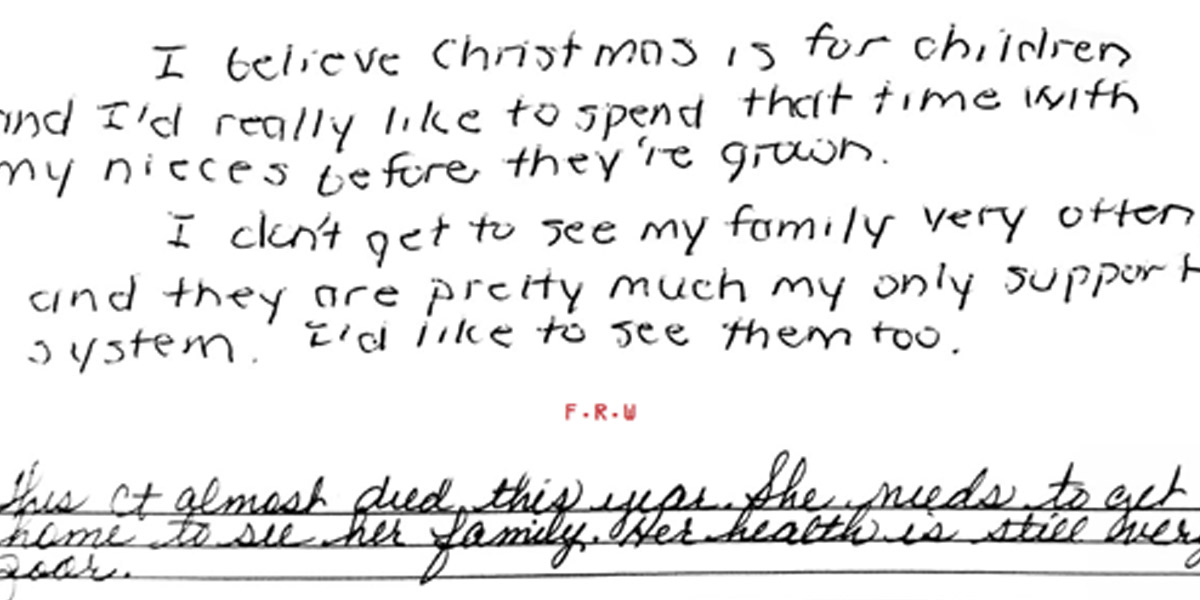 I believe Christmas is for children
and I'd really like to spend that time with
my nieces before they're grown.
I don't get to see my family very often
and they are pretty much my only support
system. I'd like to see them too.
F.R.W
This ct almost died this year. She needs to get
home to see her family. Her health is still very
poor.